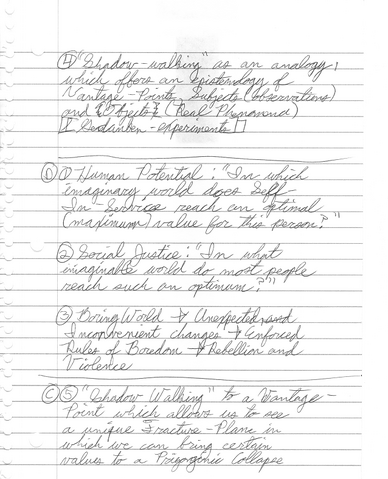 ④ "Shadow-walking" as an analogy,
which offers an epistemology of
Vantage-Points, Subjects (observations)
and Objects (Real Phenomena)
[Gedanken-experiments]
Ⓓ ① Human Potential: "In which
imaginary world does Self-
In-Service reach an optimal
(maximum) value for this person?"
② Social Justice: "In what
imaginable world do most people
reach such an optimum?"
③ Boring World → Unexpected and
Inconvenient changes → Enforced
Rules of Boredom → Rebellion and
Violence
Ⓒ ⑤ "Shadow-Walking" to a Vantage-
Point which allows us to see
a unique Fracture-Plane in
which we can bring certain
values to a Prigoginic Collapse